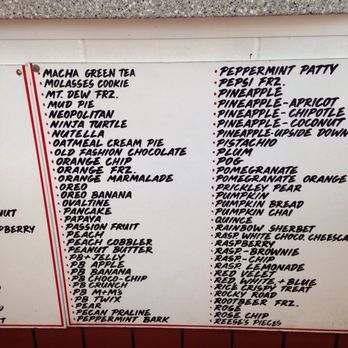 NUT
PBERRY
MACHA GREEN TEA
MOLASSES COOKIE
MT. DEW FRZ.
MUD PIE
NEOPOLITAN
NINJA TURTLE
NUTELLA
OATMEAL CREAM PIE
OLD FASHION CHOCOLATE
ORANGE CHIP
ORANGE FRZ.
ORANGE MARMALADE
OREO
OREO BANANA
OVALTINE
PANCAKE
PAPAYA
PASSION FRUIT
PEACH
PEACH COBBLER
PEANUT BUTTER
PB+JELLY
PB APPLE
PB BANANA
PB CHOCO-CHIP
PB CRUNCH
PB M+M's
PB TWIX
PEAR
PECAN PRALINE
PEPPERMINT BARK
PEPPERMINT PATTY
PEPSI FRZ.
PINEAPPLE
PINEAPPLE-APRICOT
PINEAPPLE-CHIPOTLE
PINEAPPLE-COCONUT
PINEAPPLE-UPSIDE DOWN
PISTACHIO
PLUM
POG
POMEGRANATE
POMEGRANATE ORANGE
PRICKLEY PEAR
PUMPKIN
PUMPKIN BREAD
PUMPKIN CHAI
QUINCE
RAINBOW SHERBET
RASP. WHITE CHOCO. CHEESCA
RASPBERRY
RASP.-BROWNIE
RASP.-CHIP
RASP. LEMONADE
RED VELVET
RED WHITE + BLUE
RICE CRISPY TREAT
ROCKY ROAD
ROOTBEER FRZ.
ROSE
ROSE CHIP
REESE'S PIECES